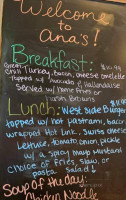 Welcome
to
Ana's!
Breakfast:
Green Chili, Turkey, bacon, cheese omelette
Topped w/ Avocado & Hollandaise
Served w/ home fries or
hash browns
Lunch: West side Burger
topped w/ hot pastrami, bacon
wrapped Hot link, Swiss cheese
Lettuce, tomato, onion, pickle
w/ a spicy mayo mustard
choice of Fries, slaw, or
pasta salad!
Soup of the day:
Chicken Noodle